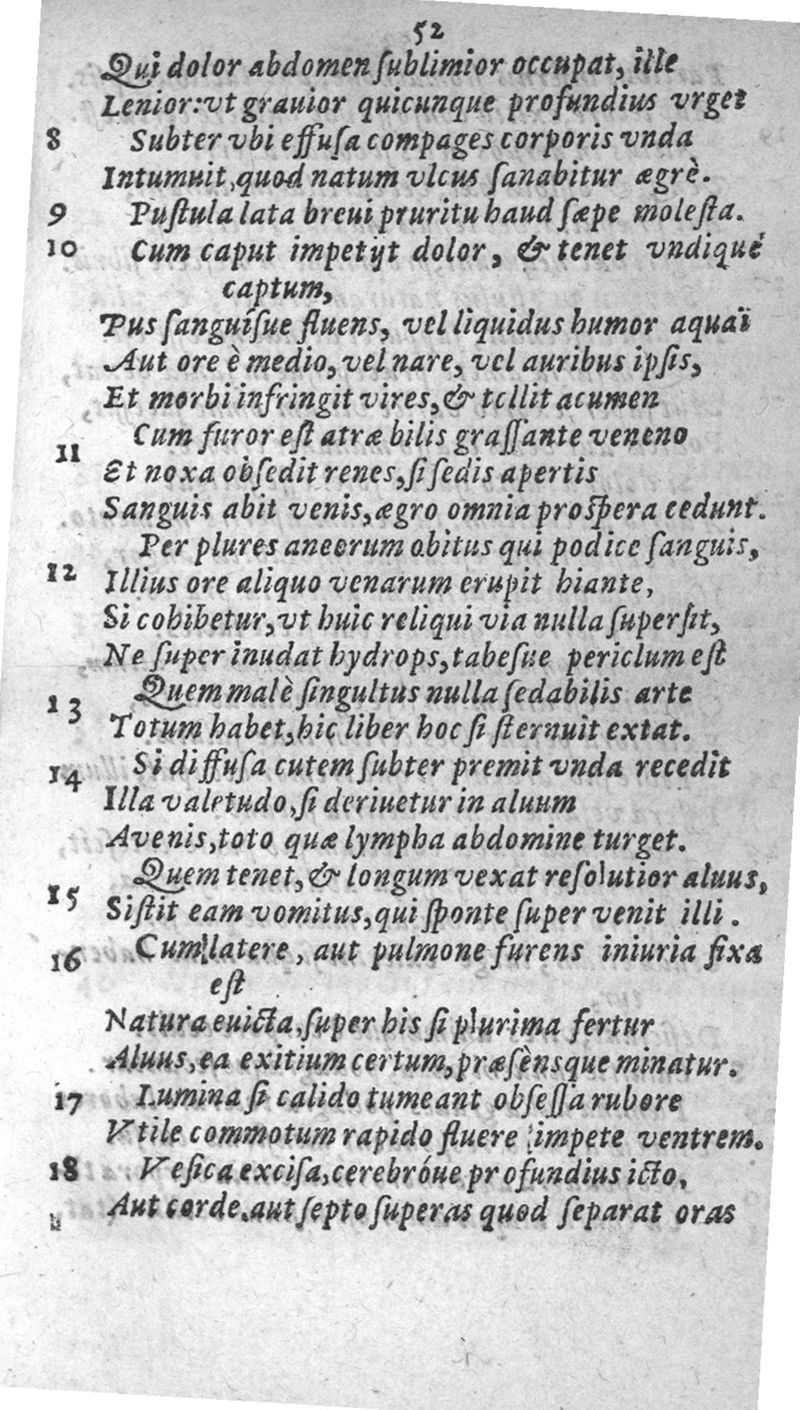 52
Qui dolor abdomen ſublimior occupat, ille
Lenior: vt grauior quicunque profundius vrget
8 Subter vbi effuſa compages corporis vnda
Intumuit, quod natum vlcus ſanabitur ægrè.
9 Puſtula lata breui pruritu haud ſæpe moleſta.
10 Cum caput impetijt dolor, & tenet vndiqué
captum,
Pus ſanguiſue fluens, vel liquidus humor aquaï
Aut ore è medio, vel nare, vel auribus ipſis,
Et morbi infringit vires, & tollit acumen
11 Cum furor eſt atræ bilis graſſante veneno
Et noxa obſedit renes, ſi ſedis apertis
Sanguis abit venis, ægro omnia proſpera cedunt.
12 Per plures annorum obitus qui podice ſanguis,
Illius ore aliquo venarum erupit hiante,
Si cohibetur, vt huic reliqui via nulla ſuperſit,
Ne ſuper inudat hydrops, tabeſue periclum eſt
13 Quem malè ſingultus nulla ſedabilis arte
Totum habet, hic liber hoc ſi ſternuit extat.
14 Si diffuſa cutem ſubter premit vnda recedit
Illa valetudo, ſi deriuetur in aluum
A venis, toto quæ lympha abdomine turget.
15 Quem tenet, & longum vexat reſolutior aluus,
Siſtit eam vomitus, qui ſponte ſuper venit illi.
16 Cum latere, aut pulmone furens iniuria fixa
eſt
Natura euicta, ſuper his ſi plurima fertur
Aluus, ea exitium certum, præſènsque minatur.
17 Lumina ſi calido tumeant obſeſſa rubore
Vtile commotum rapido fluere impete ventrem.
18 Veſica exciſa, cerebróue profundius icto,
Aut corde, aut ſepto ſuperas quod ſeparat oras